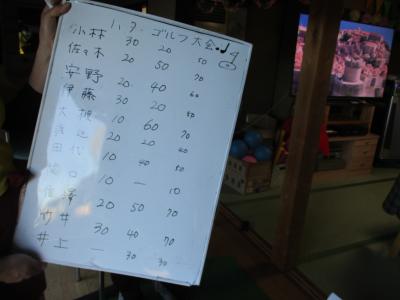 ハ タ ゴルフ 大会
小林 30 20 50
佐々木 20 50 70
安野 20 40 60
伊藤 30 20 50
大 10 60 70
20 20 40
田代 10 40 50
口 10 — 10
澤 20 50 70
竹井 30 40 70
井上 — 30 30